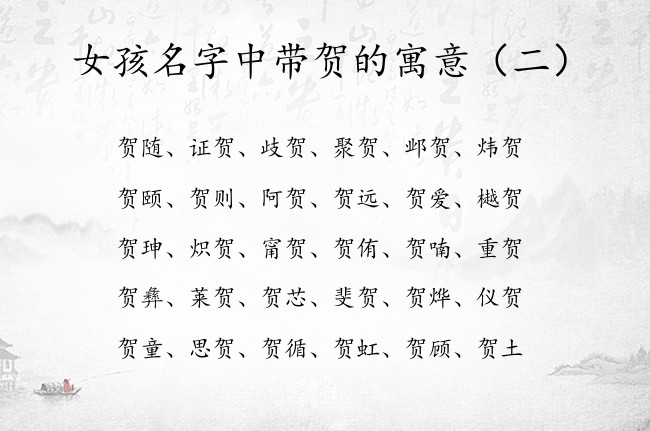 女孩名字中带贺的寓意（二）
贺随、证贺、歧贺、聚贺、邺贺、炜贺
贺颐、贺则、阿贺、贺远、贺爱、樾贺
贺珅、炽贺、甯贺、贺侑、贺喃、重贺
贺彝、莱贺、贺芯、斐贺、贺烨、仪贺
贺童、思贺、贺循、贺虹、贺顾、贺土